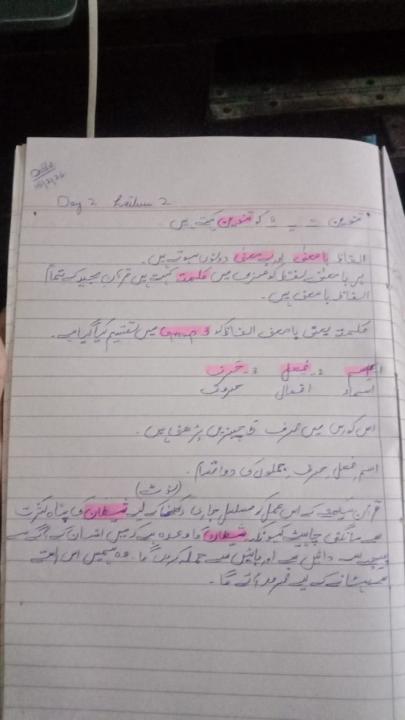 Day 2 Lecture 2
تنوین ـً ـٍ ـٌ کو تنوین کہتے ہیں۔
الفاظ بامعنی اور بے معنی دونوں ہوتے ہیں۔
ہر بامعنی لفظ کو عربی میں کلمة کہتے ہیں قرآن مجید کے تمام
الفاظ بامعنی ہیں۔
کلمة یعنی بامعنی الفاظ کو 3 group میں تقسیم کیا گیا ہے۔
اسم 2. فعل 3. حرف
اسماء افعال حروف
اس کورس میں صرف چیزیں پڑھنی ہیں۔
اسم، فعل، حرف، جملوں کی دو اقسام۔
(نوٹ)
قرآن کے اس عمل کو مسلسل جاری رکھنے کے لیے شیطان کی پناہ کثرت
سے مانگنی چاہیئے کیونکہ شیطان کا وعدہ ہے کہ میں انسان کے آگے سے
پیچھے سے دائیں سے اور بائیں سے حملہ کروں گا۔ وہ ہمیں اس راستے
سے ہٹانے کے لیے ضرور آئے گا۔